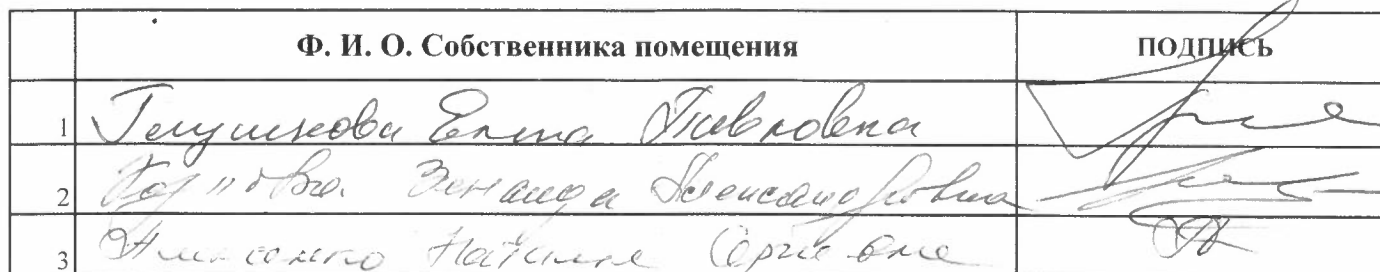 Ф. И. О. Собственника помещения ПОДПИСЬ
1 Глушкова Елена Павловна
2 Зинаида Александровна
3 Наталья Сергеевна